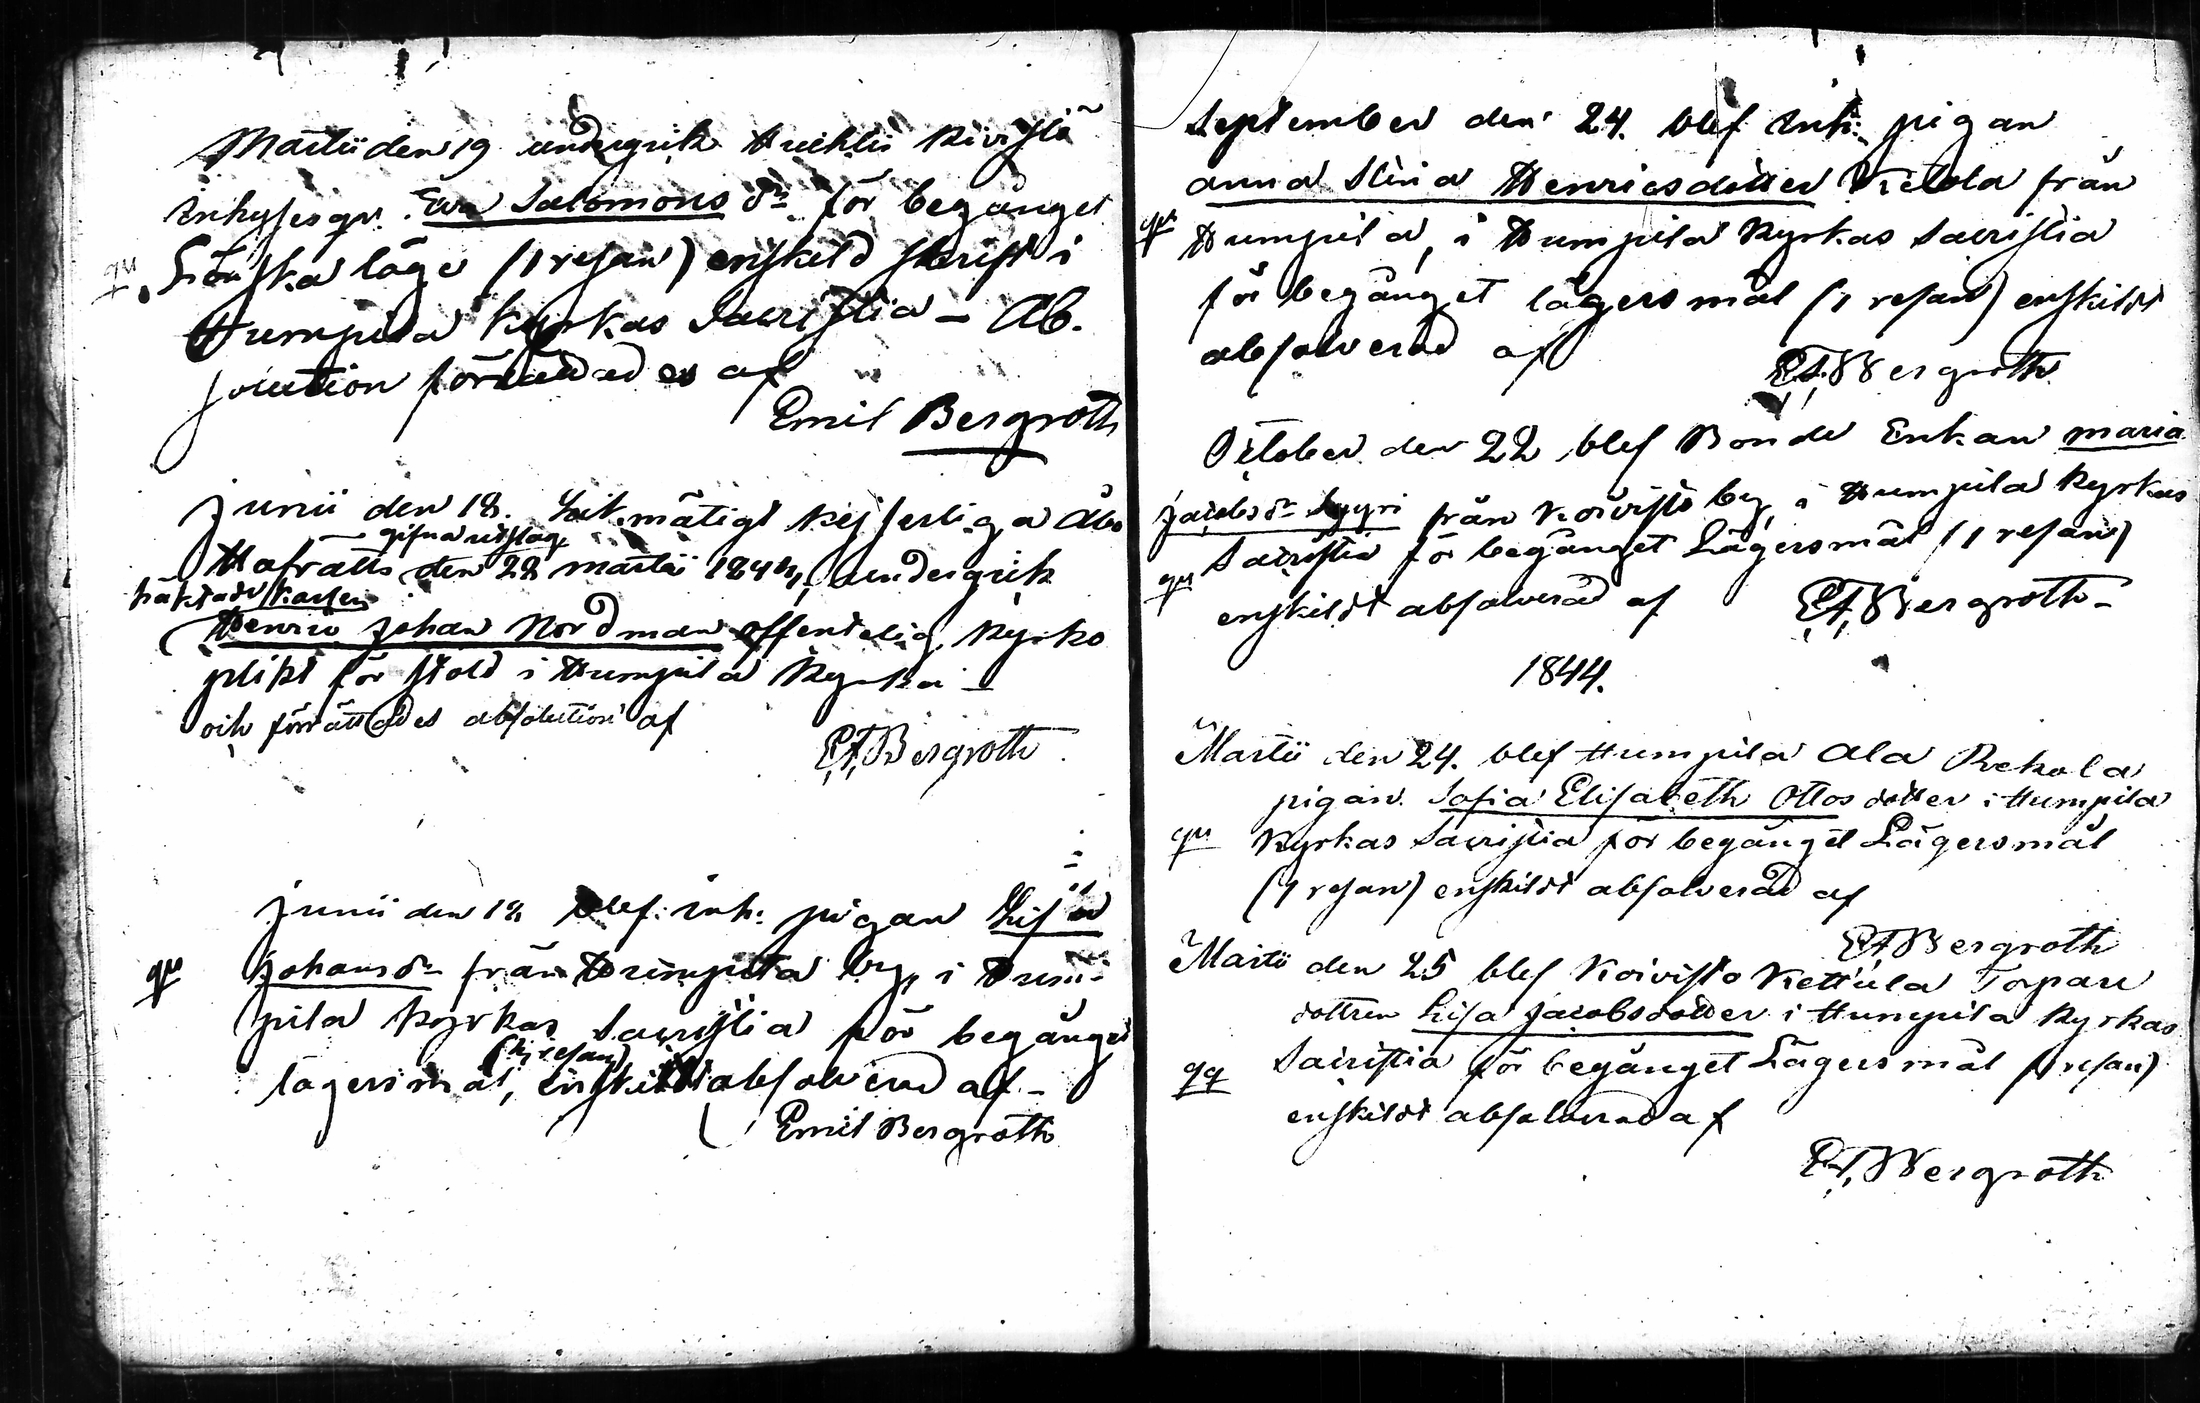 Martii den 19 undergick Huhtis Kivistö
Inhyses qv. Eva Salomons dr för begånget
qv Lönska läge (1 resan) enskild skrift i
Humpila Kyrkas Sacristia – Ab-
solution förrättades af
Emil Bergroth
Junii den 18. Lik mätigt Kejserliga Åbo
gifna utslag
Hofrätts den 22 Martii 1844, undergick
häktade Karlen
Henric Johan Nordman offentelig Kyrko
plikt för stöld i Humpila Kyrka –
och förrättades absolution af
E.F. Bergroth
Junii den 18 blef inh: pigan Lisa
qv Johansdr från Humpila by, i Hum-
pila Kyrkas Sacristia för begånget
(1 resan)
lägersmål, enskildt absolverad af –
Emil Bergroth
September den 24. blef Inh: pigan
Anna Stina Henricsdotter från
qv Humpila, i Humpila Kyrkas Sacristia
för begånget lägersmål (1 resan) enskildt
absolverad af E.F. Bergroth
October den 22 blef Bonde Enkan Maria
Jacobsdr Syyri från Koivisto by, i Humpila Kyrkas
qv Sacristia för begånget Lägersmål (1 resan)
enskildt absolverad af E.F. Bergroth –
1844.
Martii den 24. blef Humpila Ala Rekola
pigan Sofia Elisabeth Ottosdotter i Humpila
qv Kyrkas Sacristia för begånget Lägersmål
(1 resan) enskildt absolverad af
E.F. Bergroth
Martii den 25 blef Koivisto Kettula Torpare
dottren Lisa Jacobsdotter i Humpila Kyrkas
qq Sacristia för begånget Lägersmål (1 resan)
enskildt absolverad af
E.F. Bergroth